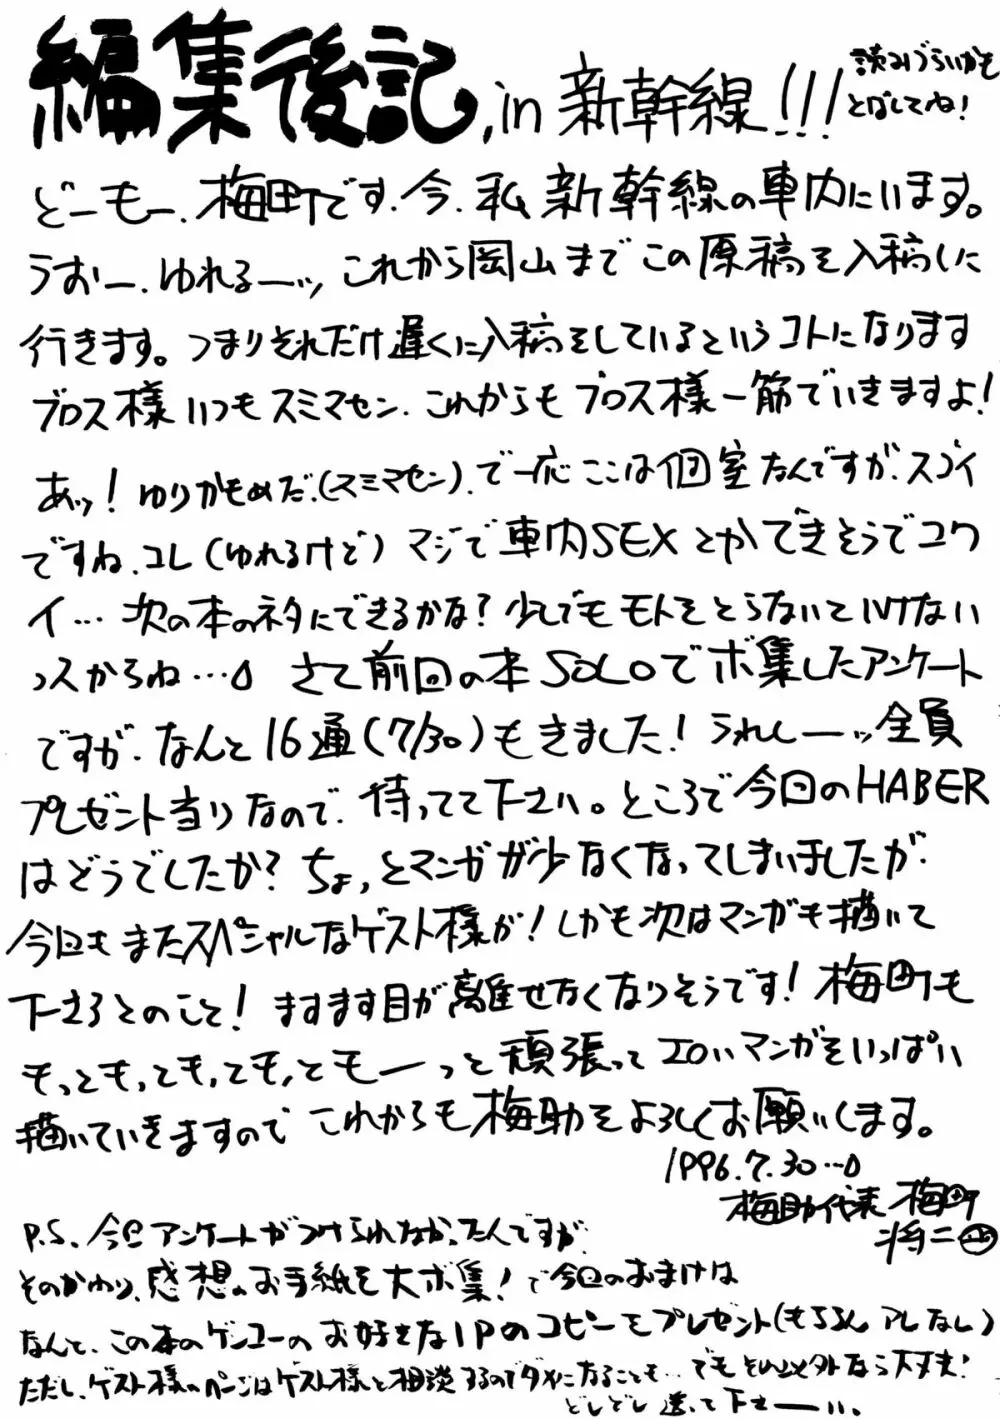 編集後記,in 新幹線!!!
読みづらいかも
とばしてね!
どーもー、梅町です。今、私新幹線の車内にいます。
うおー、ゆれるーッ、これから岡山までこの原稿を入稿しに
行きます。つまりそれだけ遅くに入稿をしているというコトになります
ブロス様いつもスミマセン、これからもブロス様一筋でいきますよ!
あッ!ゆりかもめだ、(スミマセン)。で一応ここは個室なんですが、スゴイ
ですね、コレ(ゆれるけど)マジで車内SEXとかできそうでコワ
イ…次の本のネタにできるかな?少しでもモトをとらないといけない
ッスからね… さて前回の本SOLOでボ集したアンケート
ですが、なんと16通(7/30)もきました!うれしーーッ全員
プレゼント当りなので、待ってて下さい。ところで今回のHABER
はどうでしたか?ちょっとマンガが少なくなってしまいましたが、
今回もまたスペシャルなゲスト様が!しかも次はマンガも描いて
下さるとのこと!ますます目が離せなくなりそうです!梅町も
もっともっとも,とも,ともーっと頑張ってエロいマンガをいっぱい
描いていきますので これからも梅助をよろしくお願いします。
1996.7.30…
梅助代表 梅町
将二
P.S. 今回アンケートがつけられなかったんですが、
そのかわり、感想のお手紙を大ボ集!で今回のおまけは
なんと、この本のゲンコーのお好きな1Pのコピーをプレゼント(もちろんアレなし)
ただし、ゲスト様のページはゲスト様と相談するのでダメになることも…でもそれ以外なら大丈夫!
どしどし送って下さーい。